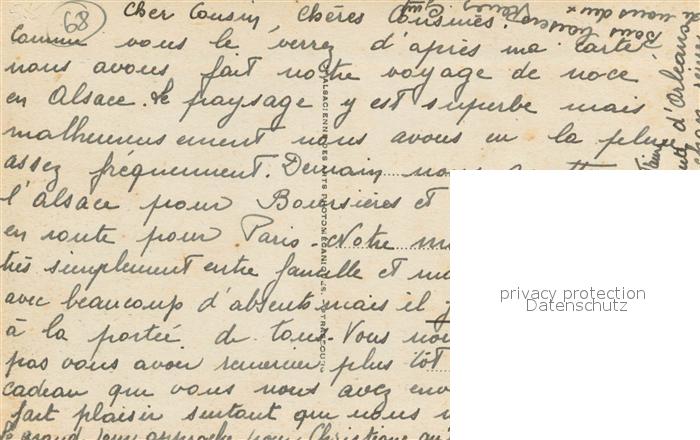 68
Cher Cousin, Chères Cousines.
Comme vous le verrez d'après ma carte
nous avons fait notre voyage de noce
en Alsace. Le paysage y est superbe mais
malheureusement nous avons eu la pluie
assez fréquemment. Demain nous
l'alsace pour Bourières et
en route pour Paris. Notre
très simplement entre famille et
avec beaucoup d'absents mais il
à la portée de tous. Vous
pas vous avoir remercier plus tôt
cadeau que vous nous avez
fait plaisir surtout que nous
le grand jour approche pour Christiane
d'Orléans
ALSACIENNE DES ARTS PHOTOMÉCANIQUES, STRASBOURG
privacy protection
Datenschutz